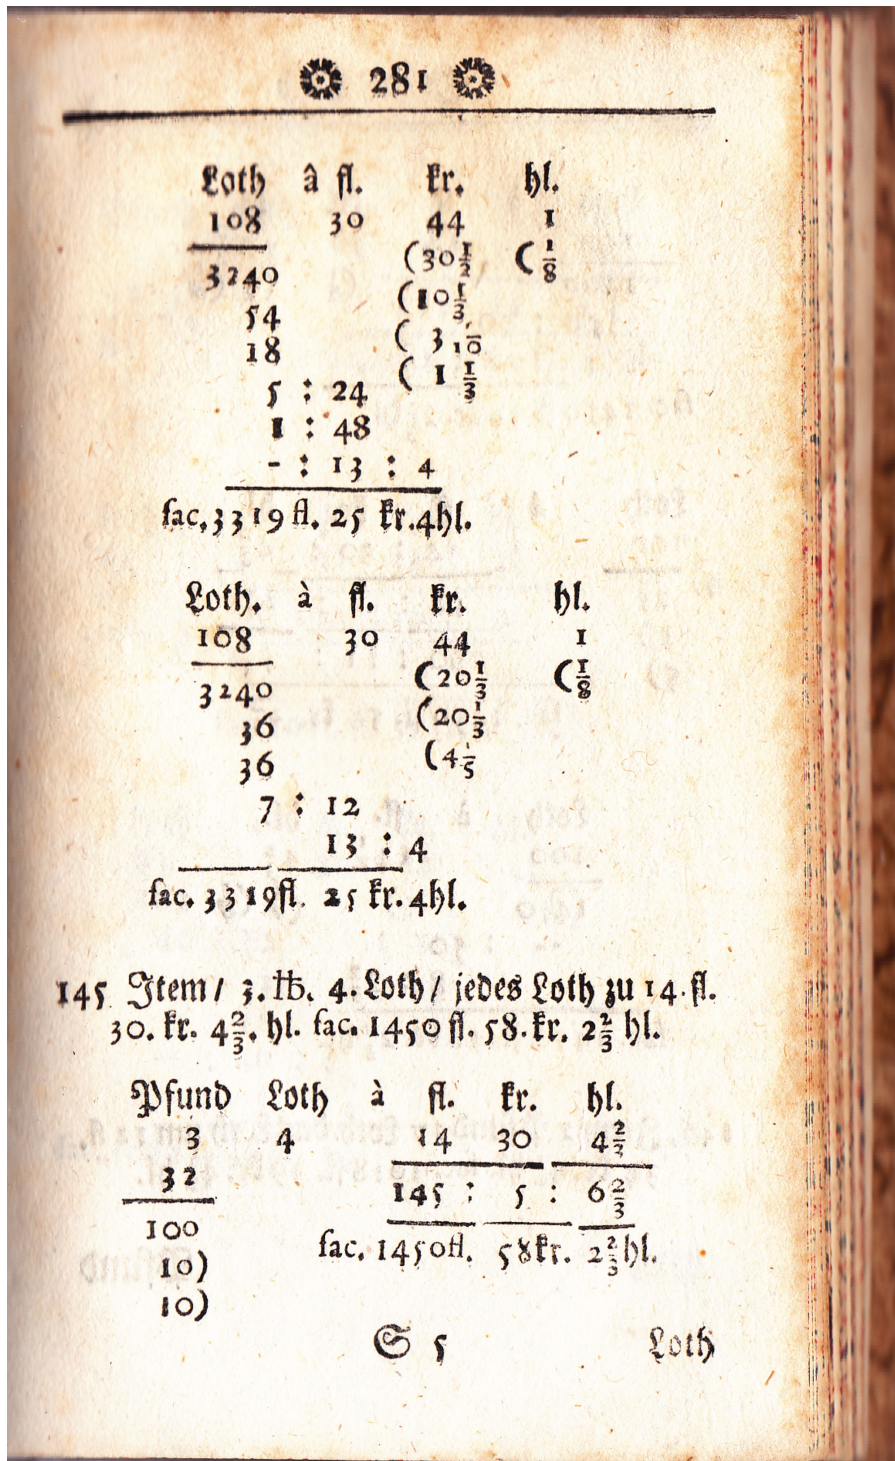 281
Loth â fl. kr. hl.
108 30 44 1
3240 (30 1/2 (1/8
54 (10 1/3
18 ( 3 1/10
5 : 24 ( 1 1/3
1 : 48
- : 13 : 4
fac. 3319 fl. 25 kr. 4hl.
Loth. à fl. kr. hl.
108 30 44 1
3240 (20 1/3 (1/8
36 (20 1/3
36 (4 1/5
7 : 12
13 : 4
fac. 3319fl. 25 kr. 4hl.
145 Item / 3. ℔. 4. Loth / jedes Loth zu 14. fl.
30. kr. 4 2/3. hl. fac. 1450 fl. 58. kr. 2 2/3 hl.
Pfund Loth à fl. kr. hl.
3 4 14 30 4 2/3
32 145 : 5 : 6 2/3
100 fac. 1450fl. 58kr. 2 2/3 hl.
10)
10)
S 5 Loth